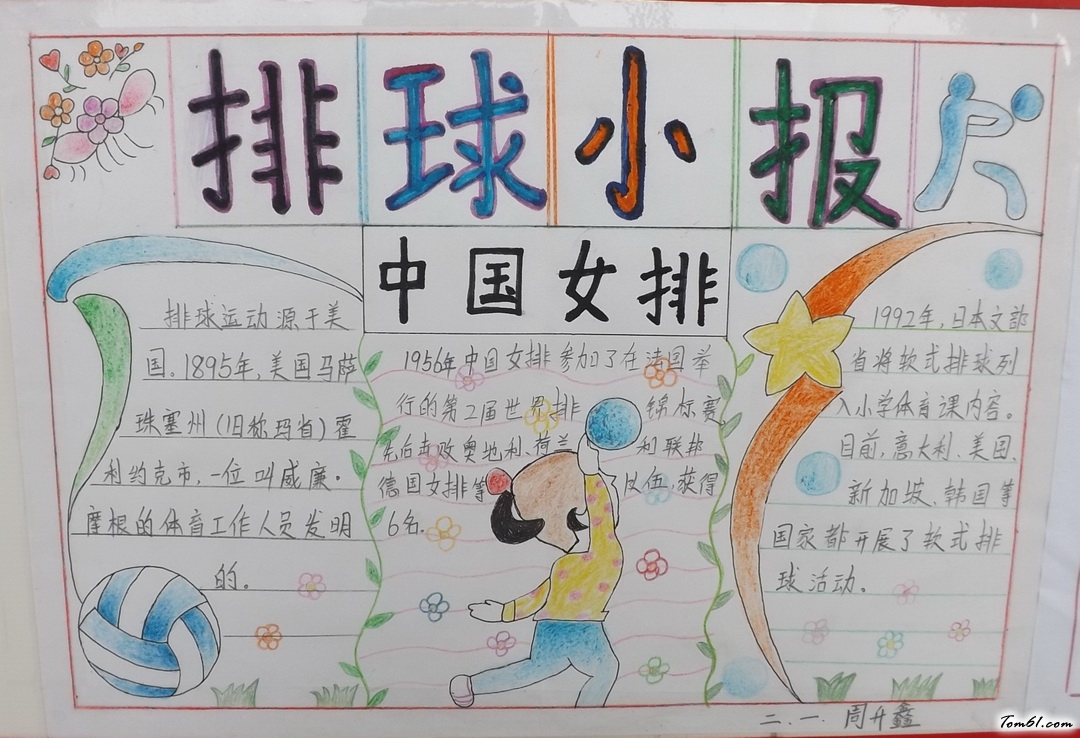 排球小报
中国女排
排球运动源于美
国。1895年,美国马萨
珠塞州(旧称玛省)霍
利约克市,一位叫威廉·
摩根的体育工作人员发明
的。
1956年中国女排参加了在法国举
行的第二届世界排 锦标赛
先后击败奥地利、荷兰 利联邦
德国女排等 队伍,获得
6名.
1992年,日本文部
省将软式排球列
入小学体育课内容。
目前,意大利、美国、
新加坡、韩国等
国家都开展了软式排
球活动。
二.一.周升鑫
Tom61.com